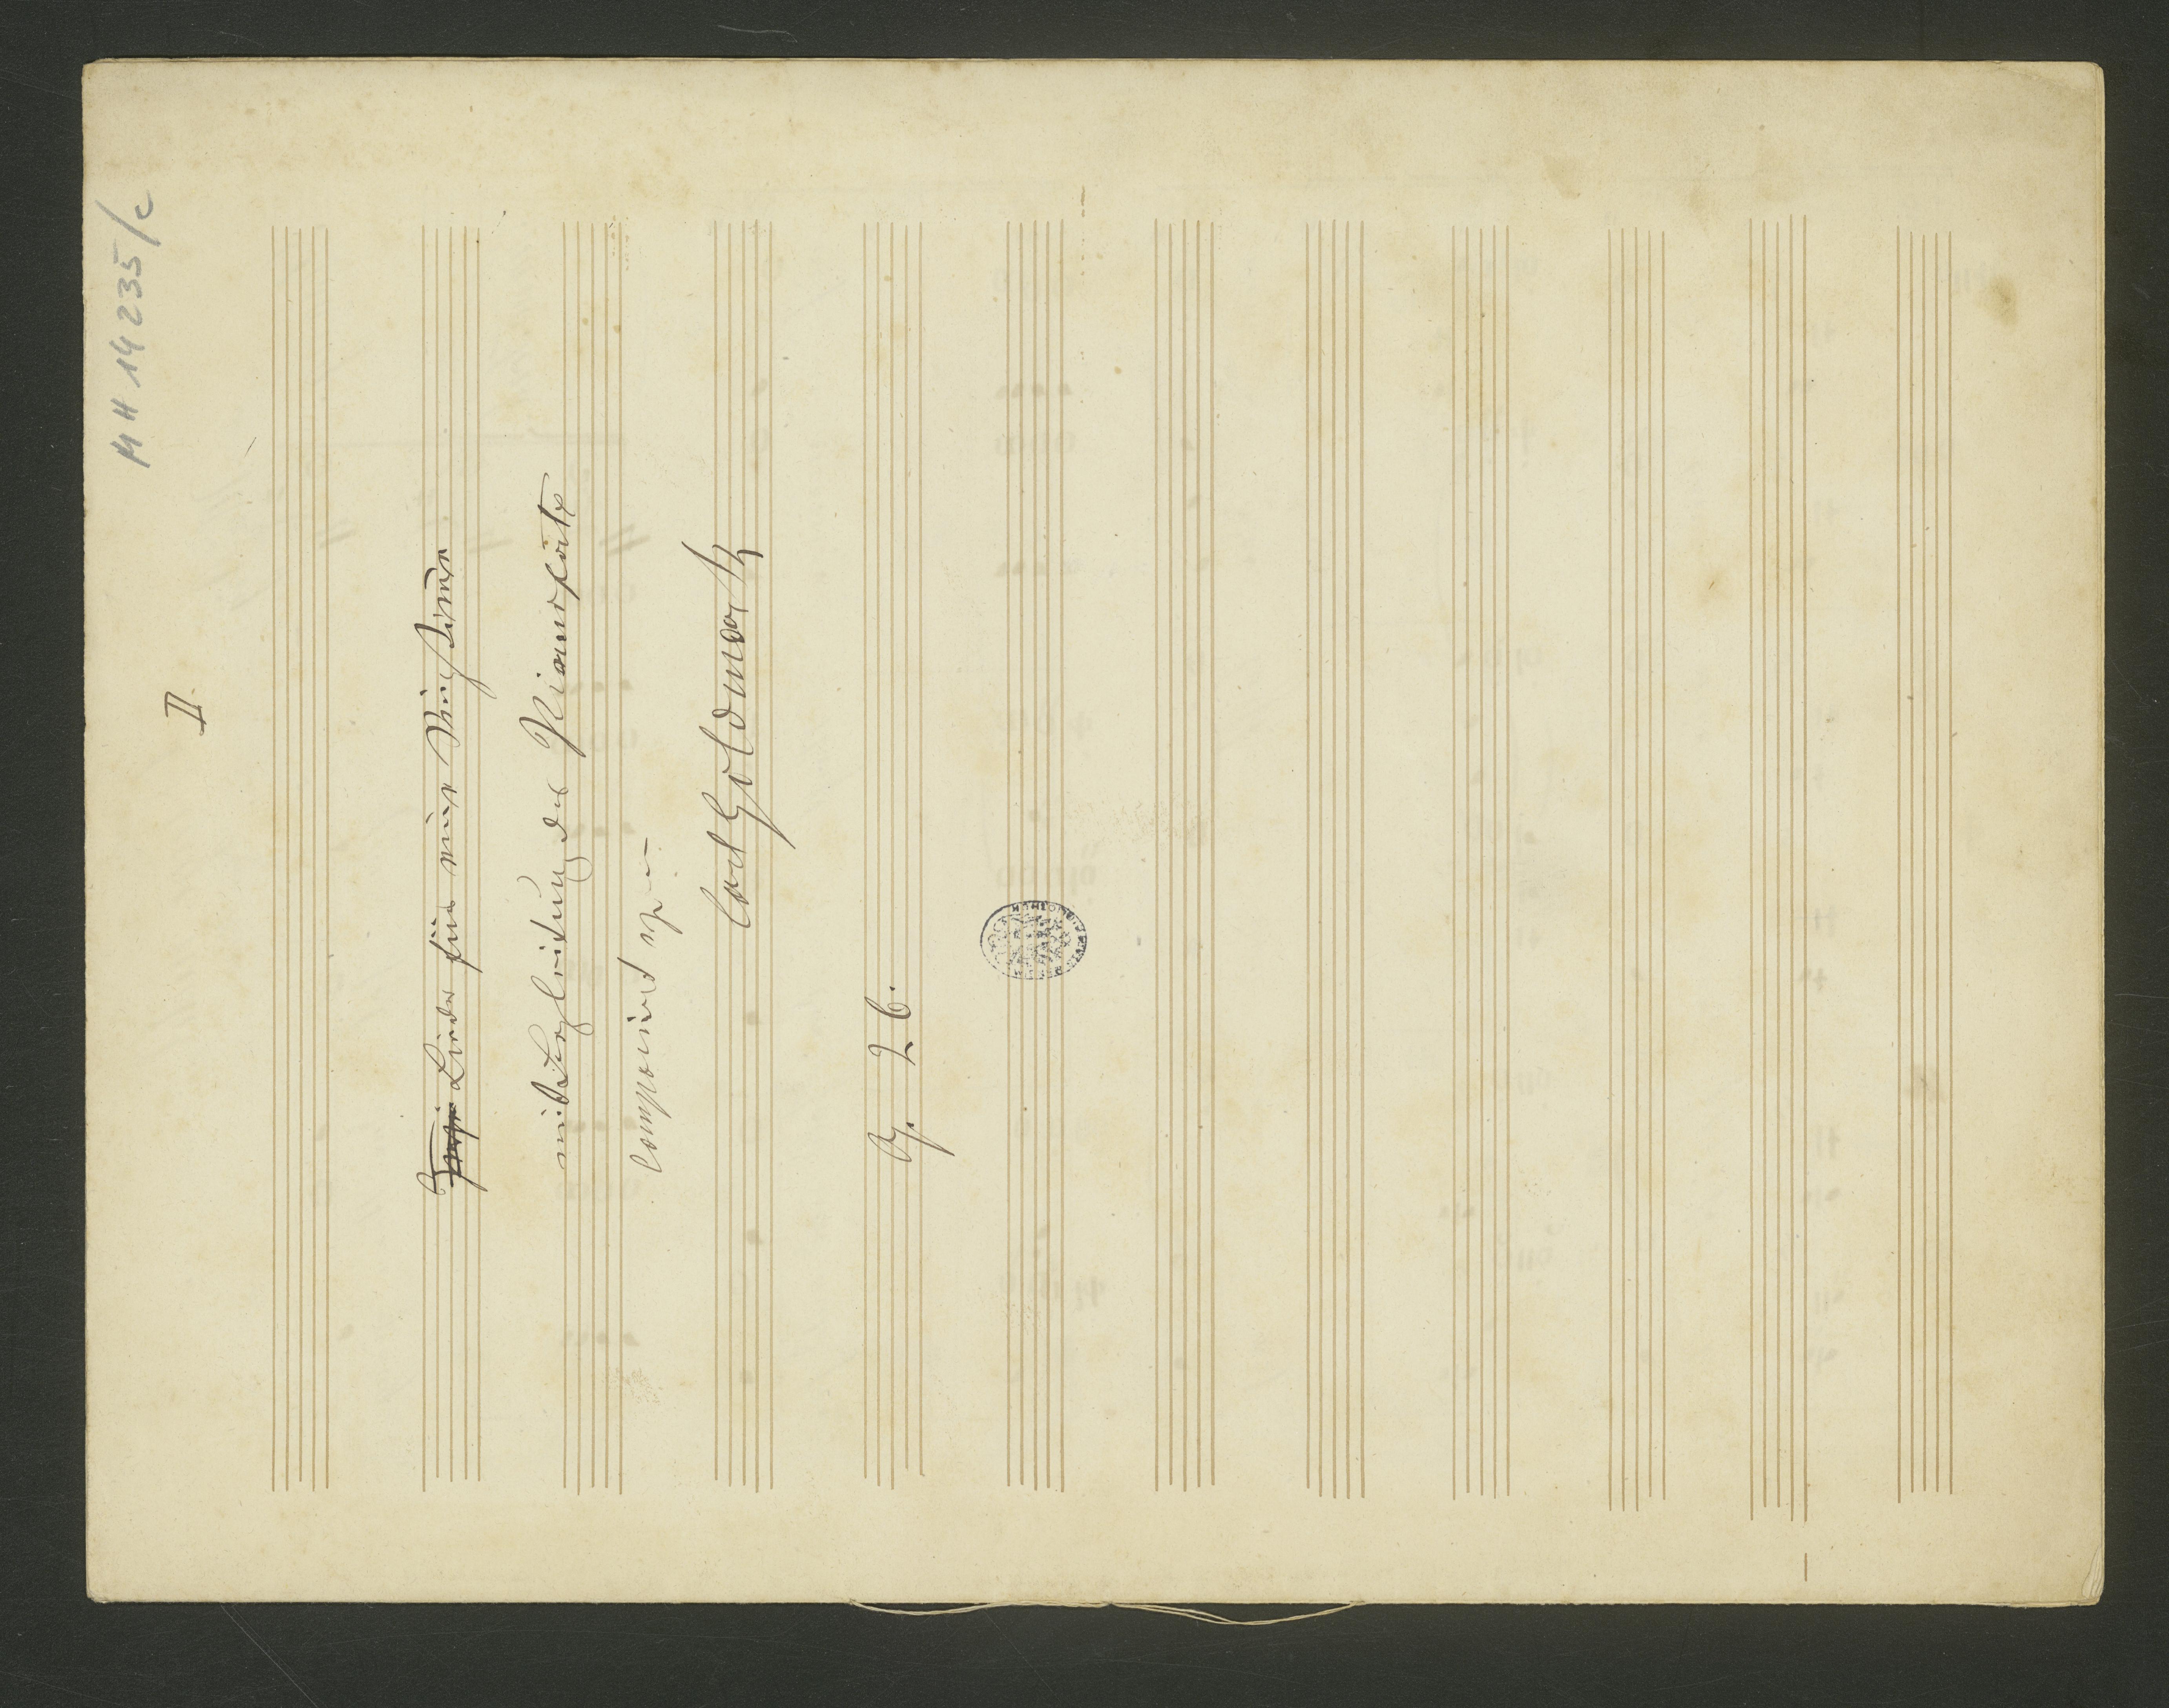 MH 14235/c
II
Lieder für eine Singstimme
mit Begleitung des Pianoforte
componirt von
Carl Goldmark
Op. 26.